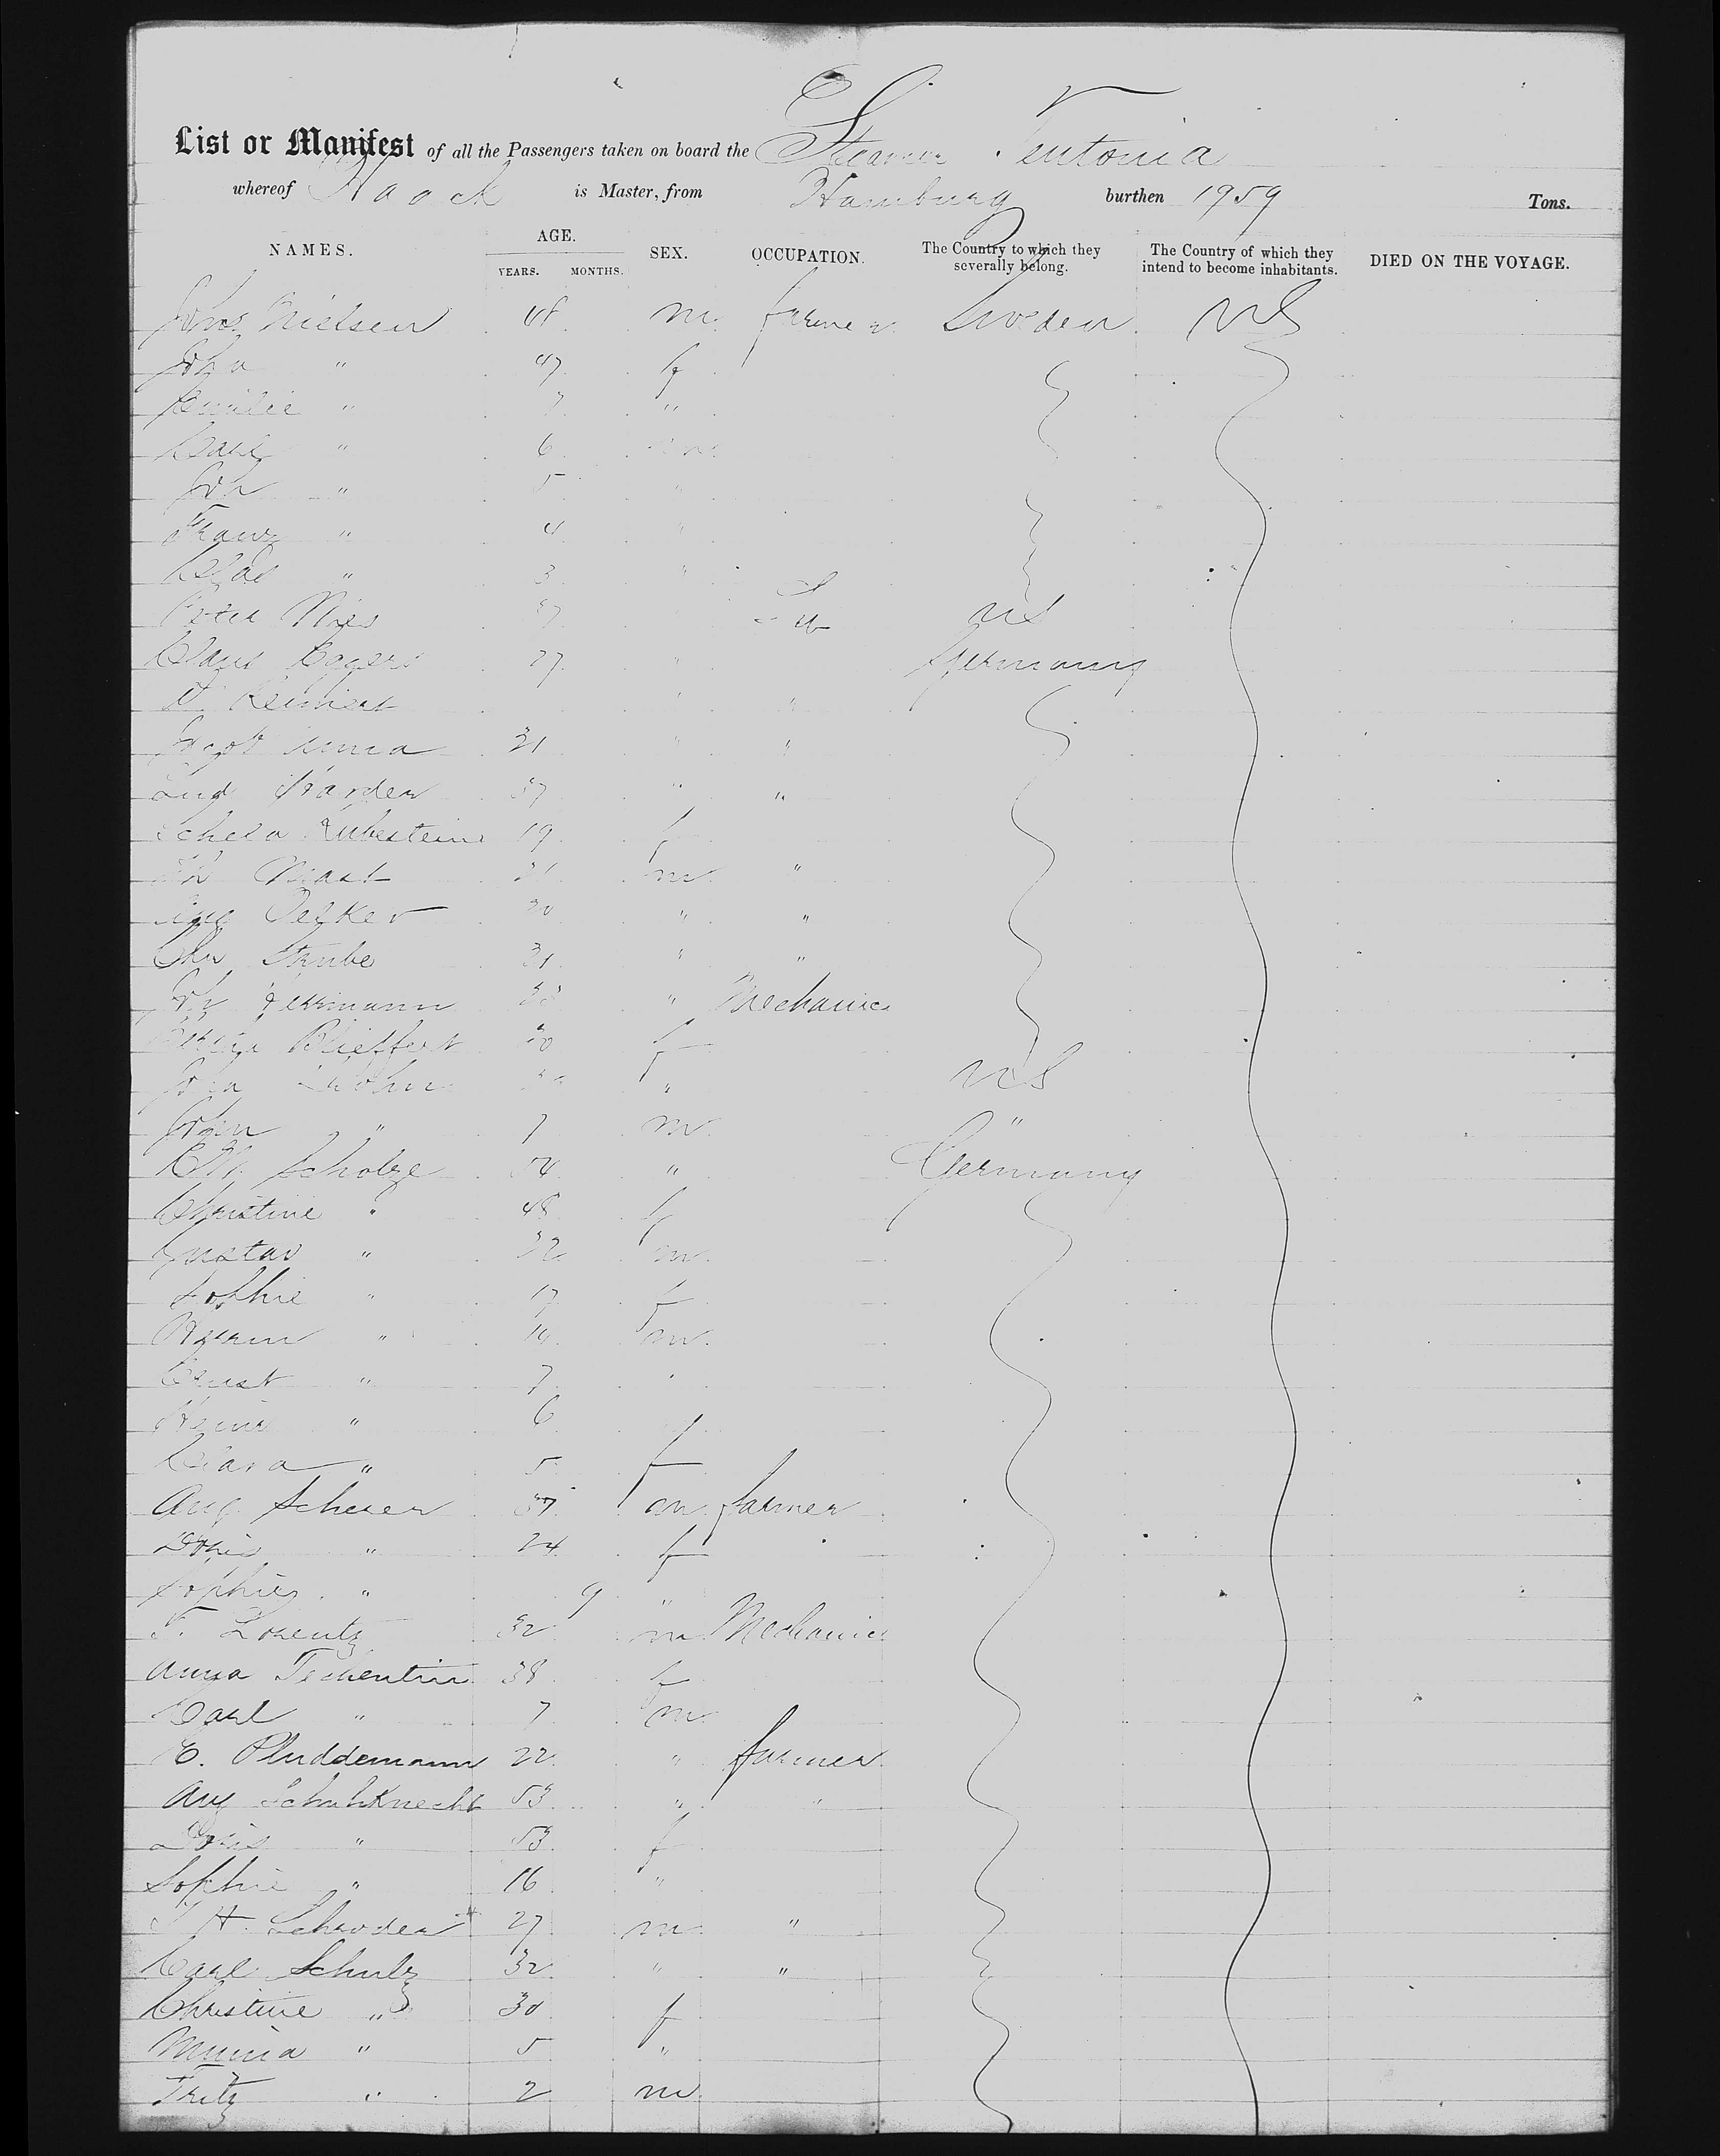 List or Manifest of all the Passengers taken on board the Steamer Teutonia
whereof Haack is Master, from Hamburg burthen 1959 Tons.
NAMES. AGE. YEARS. MONTHS. SEX. OCCUPATION. The Country to which they severally belong. The Country of which they intend to become inhabitants. DIED ON THE VOYAGE.
Nielsen m farmer Sweden US
Joha " 47 f
Emilie " 7 "
Carl " 6 m
Joh " 5 "
Franz " 4 "
" 3 "
Peter US
Claus 27 " Germany
" "
Anna 31 " "
Lud Harder 37 " "
Rubestein 19 f
31 m "
Aug Oelker 20 " "
Chr Strube 31 " "
Joh Herrmann 33 " Mechanic
Blieffert 20 f
" US
John " 7 m "
Scholze 54 " Germany
Christine " 48 f
Gustav " m
Sophie " 17 f
Herrm " m
Ernst " 7 "
Heinr " 6
Clara " 5 f
Aug Scherer 37 m farmer
Doris " 24 f
Sophie " 9 "
F. Lorentz 32 m Mechanic
Anna Techentin 38 f
Carl " 7 m
C. Pluddemann 22 " farmer
Aug Schuhknecht 53 " "
Doris " 53 f
Sophie " 16 "
H. Schroder 27 m "
Carl Schulz 32 " "
Christine " 30 f
Minna " 5 "
Fritz " 2 m